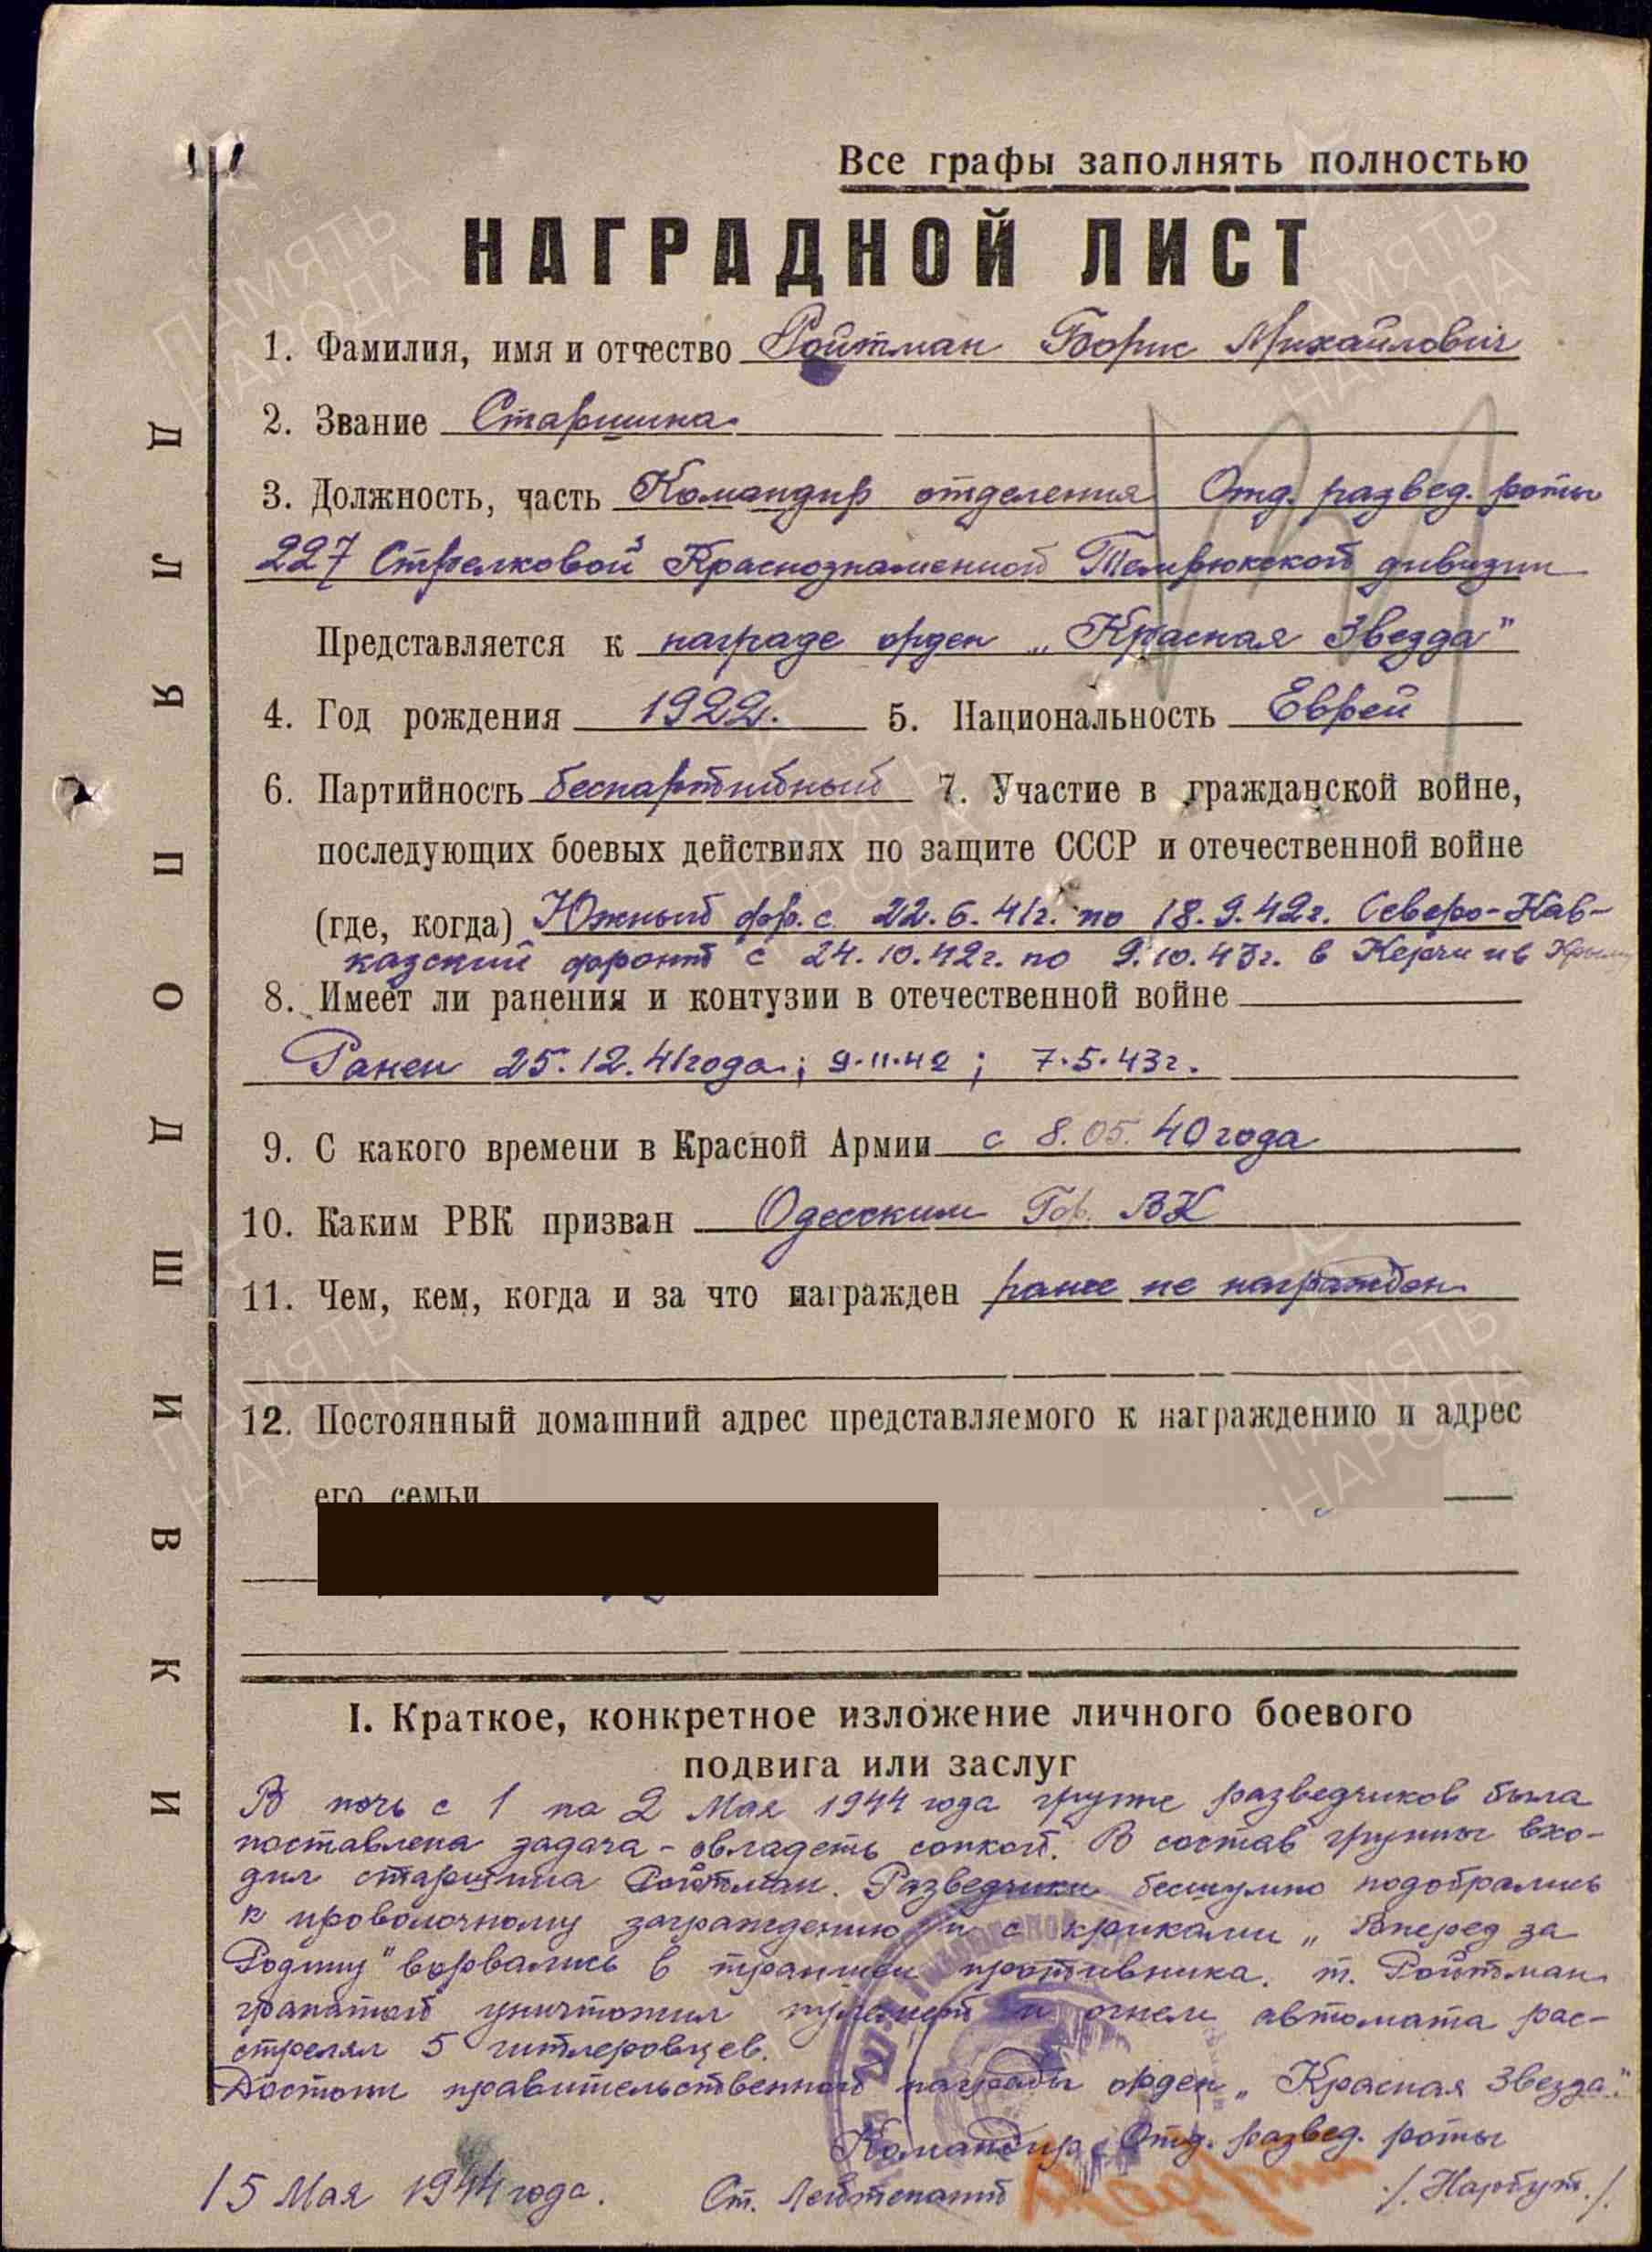 Все графы заполнять полностью
НАГРАДНОЙ ЛИСТ
1. Фамилия, имя и отчество Ройтман Борис Михайлович
2. Звание Старшина
3. Должность, часть Командир отделения Отд. развед. роты
227 Стрелковой Краснознаменной Темрюкской дивизии
Представляется к награде орден „Красная Звезда"
4. Год рождения 1922. 5. Национальность Еврей
6. Партийность беспартийный 7. Участие в гражданской войне,
последующих боевых действиях по защите СССР и отечественной войне
(где, когда) Южный фр. с 22.6.41г. по 18.9.42г. Северо-Кав-
казский фронт с 24.10.42г. по 9.10.43г. в Керчи и в Крыму
8. Имеет ли ранения и контузии в отечественной войне
Ранен 25.12.41года; 9.11.42; 7.5.43г.
9. С какого времени в Красной Армии с 8.05.40 года
10. Каким РВК призван Одесским Гор. ВК
11. Чем, кем, когда и за что награжден ранее не награжден
12. Постоянный домашний адрес представляемого к награждению и адрес
его семьи
I. Краткое, конкретное изложение личного боевого
подвига или заслуг
В ночь с 1 на 2 Мая 1944 года группе разведчиков была
поставлена задача - овладеть сопкой. В состав группы вхо-
дил старшина Ройтман. Разведчики бесшумно подобрались
к проволочному заграждению и с криками „Вперед за
Родину" ворвались в траншеи противника. т. Ройтман
гранатой уничтожил пулемет и огнем автомата рас-
стрелял 5 гитлеровцев.
Достоин правительственной награды орден „Красная Звезда"
Командир Отд. развед. роты
15 Мая 1944 года. Ст. Лейтенант /.Нарбут./
ДЛЯ ПОДШИВКИ
ПАМЯТЬ НАРОДА